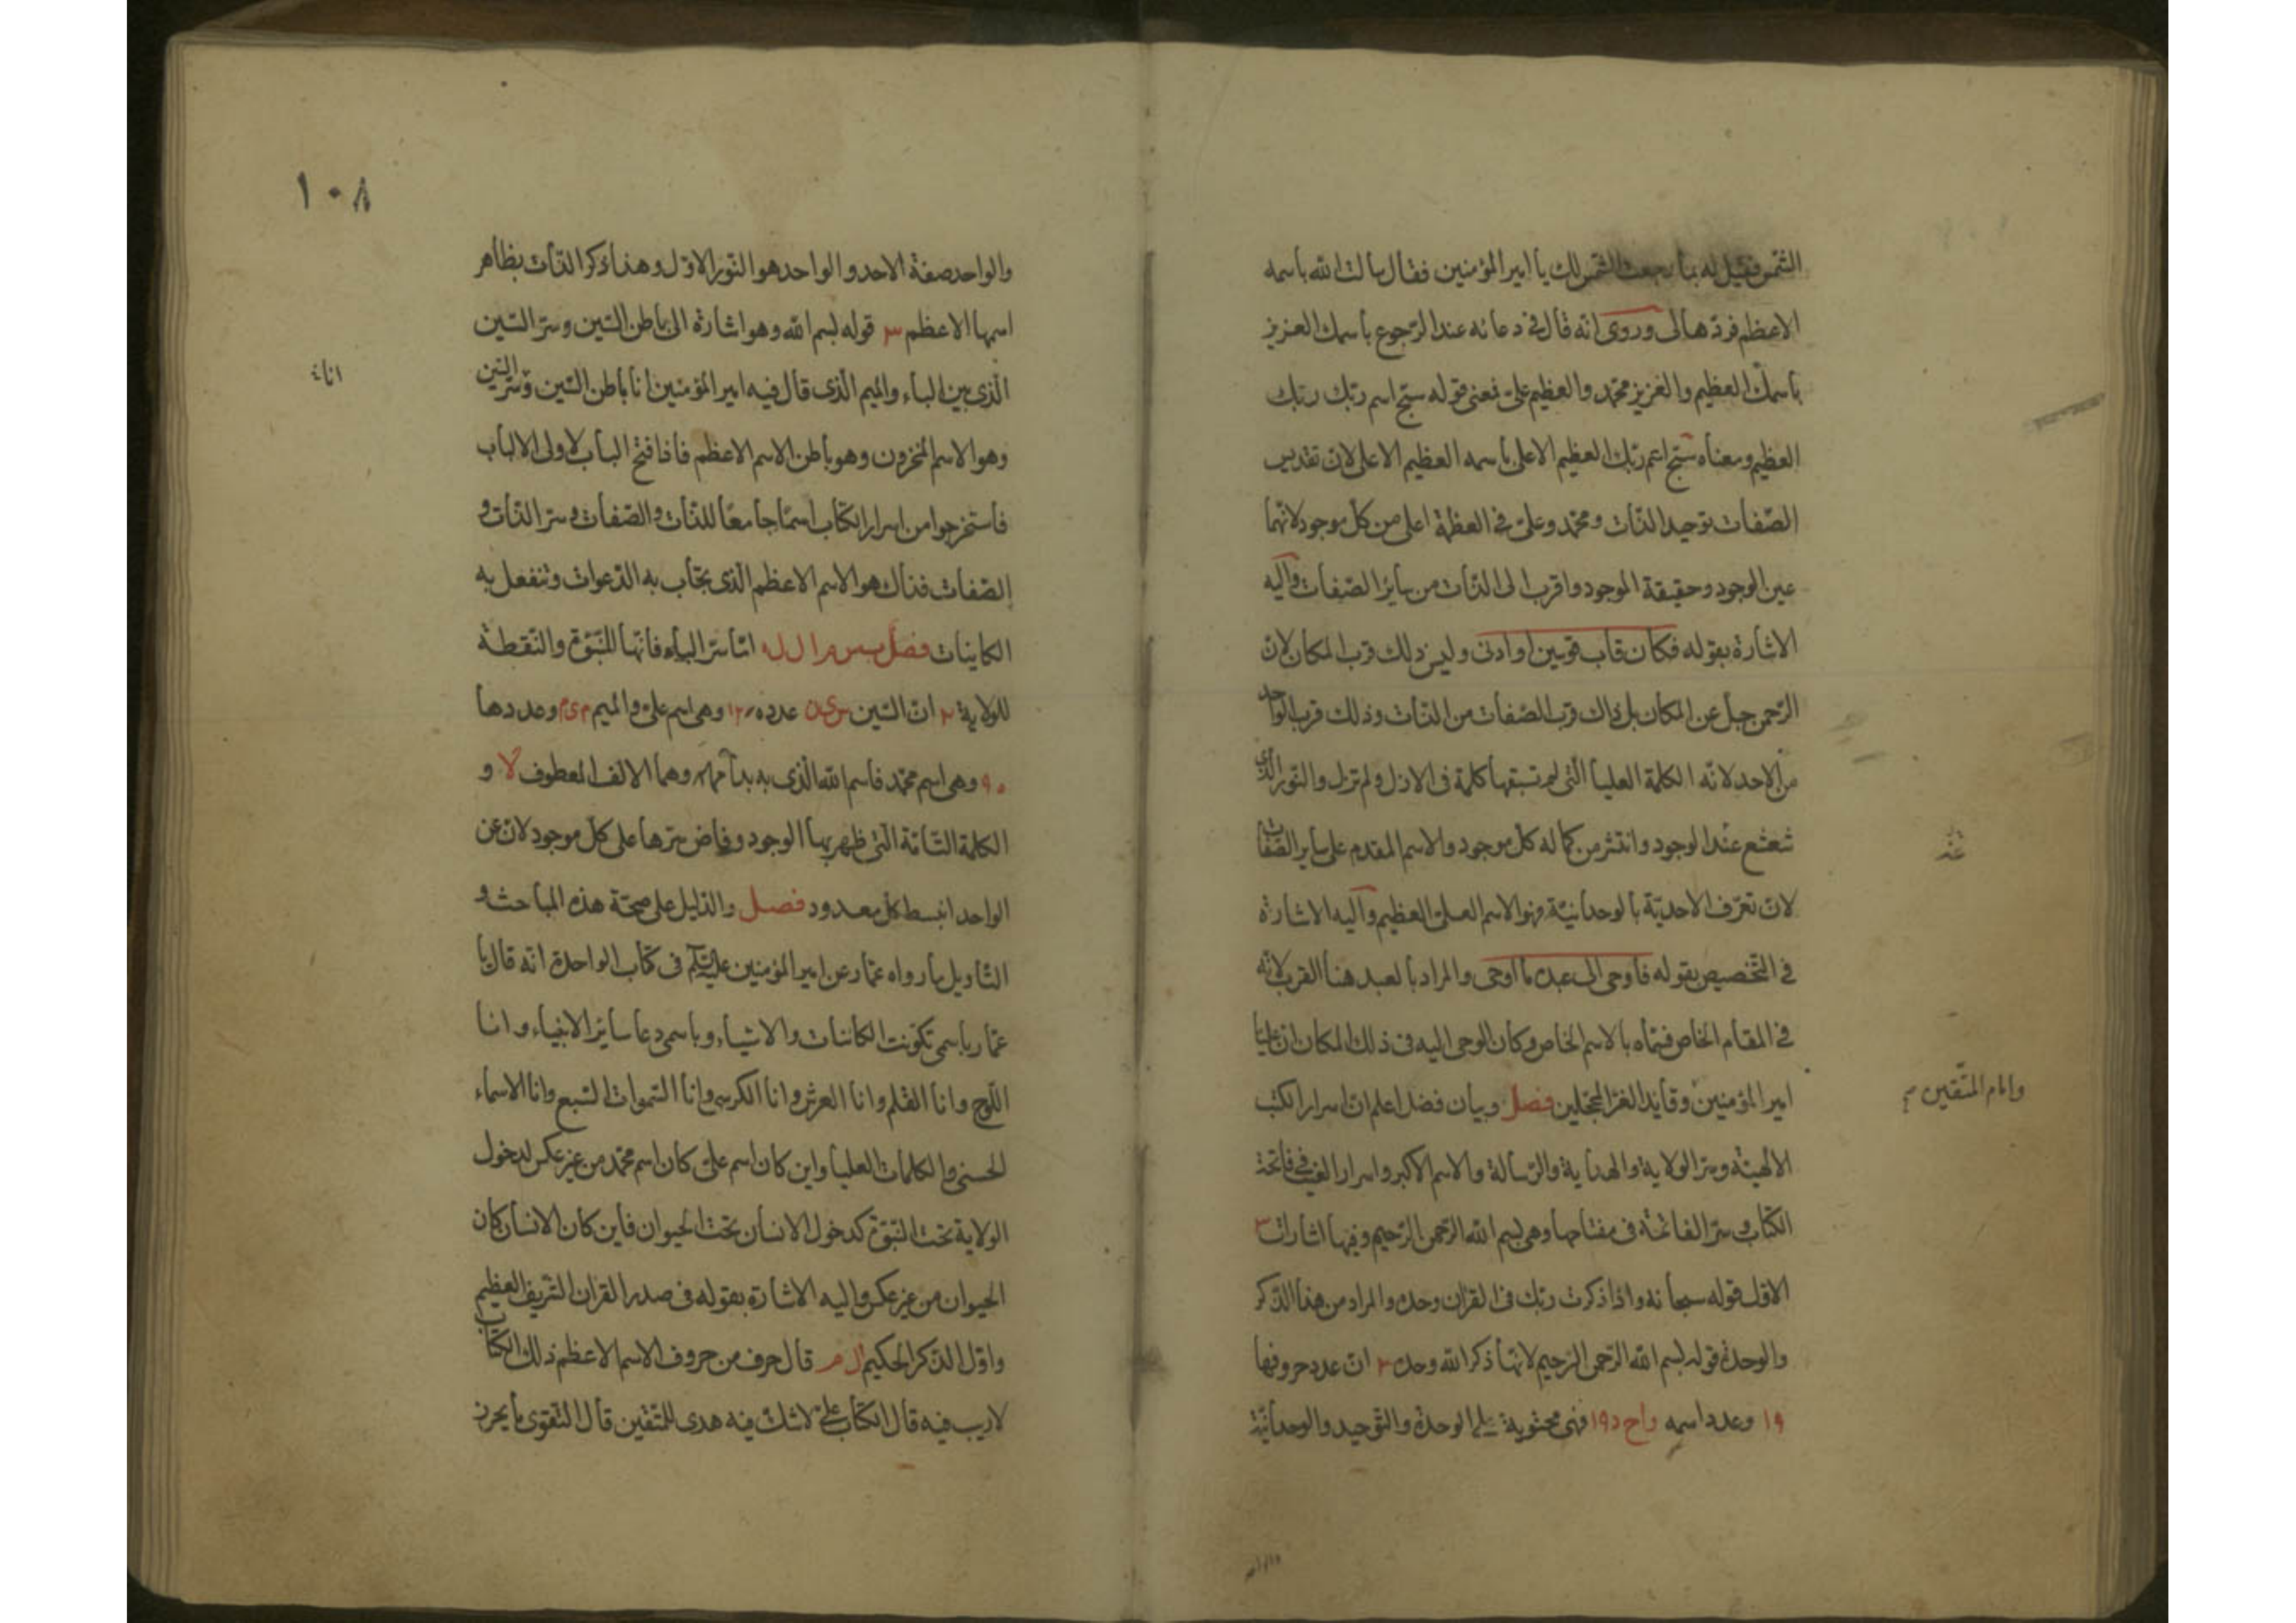 الشمس فقيل له بما رجعت الشمس لك يا امير المؤمنين فقال سالت الله باسمه
الاعظم فردّها لى وروى انه قال فى دعائه عند الرّجوع باسمك العزيز
باسمك العظيم والعزيز محمّد والعظيم علىّ فمعنى قوله سبّح اسم ربّك ربّك
العظيم ومعناه سبّح اسم ربّك العظيم الاعلى باسمه العظيم الاعلى لانّ تقديس
الصّفات توحيد الذّات ومحمّد وعلىّ فى العظمة اعلى من كلّ موجود لانّهما
عين الوجود وحقيقة الموجود واقرب الى الذّات من سائر الصّفات واليه
الاشارة بقوله فكان قاب قوسين او ادنى وليس ذلك قرب المكان لانّ
الرّحمن جلّ عن المكان بل ذاك قرب الصّفات من الذّات وذلك قرب الواحد
من الاحد لانّه الكلمة العليا الّتى لم تسبقها كلمة فى الازل ولم تزل والنّور الّذى
شعشع عند الوجود وانتثر من كماله كلّ موجود والاسم المقدم على ساير الصّفات
لانّ تعرّف الاحديّة بالوحدانيّة فهو الاسم العلىّ العظيم واليه الاشارة
فى التّخصيص بقوله فاوحى الى عبده ما اوحى والمراد بالعبد هنا القرب لانّه
فى المقام الخاص فسمّاه بالاسم الخاص وكان الوحى اليه فى ذلك المكان انّ عليّا
امير المؤمنين وقايد الغرّ المحجّلين فصل وبيان فضل اعلم انّ اسرار الكتب
وامام المتّقين
الالهيّة وسرّ الولاية والهداية والرّسالة والاسم الاكبر واسرار الغيب فى فاتحة
الكتاب وسرّ الفاتحة فى مفتاحها وهى بسم الله الرّحمن الرّحيم وفيها اشارات
الاوّل قوله سبحانه واذا ذكرت ربّك فى القران وحده والمراد من هذا الذّكر
والوحدة قوله بسم الله الرّحمن الرّحيم لانّها ذكر الله وحده ٢ انّ عدد حروفها
١٩ وعدد اسمه واح د ١٩ فهى محتوية على الوحدة والتّوحيد والوحدانيّة
١٠٨
والواحد صفة الاحد والواحد هو النّور الاوّل وهذا ذكر الذّات بظاهر
اسمها الاعظم ٣ قوله بسم الله وهو اشارة الى باطن السّين وسرّ السّين
الّذى بين الباء والميم الّذى قال فيه امير المؤمنين انا باطن السّين وسرّ السّين
وهو الاسم المخزون وهو باطن الاسم الاعظم فاذا فتح الباب لاولى الالباب
فاستخرجوا من اسرار الكتاب اسمًا جامعًا للذّات والصّفات وسرّ الذّات و
الصّفات فذاك هو الاسم الاعظم الّذى يجاب به الدّعوات وتنفعل به
الكاينات فصل ب س م ا ل ل ه امّا سرّ الباء فانّها للنّبوّة والنّقطة
للولاية ٢ انّ السّين س ى ن عدده ١٢٠ وهى اسم علىّ والميم م ى م وعددها
٩٠ وهى اسم محمّد فاسم الله الّذى به بدأ وهما الالف المعطوف لا و
الكلمة التّامّة الّتى ظهر بها الوجود وفاض سرّها على كلّ موجود لانّ عن
الواحد انبسط كلّ معدود فصل والدّليل على صحّة هذه المباحث و
التّاويل ما رواه عمّار عن امير المؤمنين عليه السّلم فى كتاب الواحدة انّه قال يا
عمّار باسمى تكوّنت الكائنات والاشياء وباسمى دعا سائر الانبياء وانا
اللّوح وانا القلم وانا العرش وانا الكرسى وانا السّموات السّبع وانا الاسماء
الحسنى والكلمات العليا واين كان اسم علىّ كان اسم محمّد من غير عكس لدخول
الولاية تحت النّبوّة كدخول الانسان تحت الحيوان فاين كان الانسان كان
الحيوان من غير عكس واليه الاشارة بقوله فى صدر القران الشّريف العظيم
واوّل الذّكر الحكيم ال م قال حرف من حروف الاسم الاعظم ذلك الكتاب
لاريب فيه قال الكتاب علىّ لاشكّ فيه هدى للمتّقين قال التّقوى ما يحرز